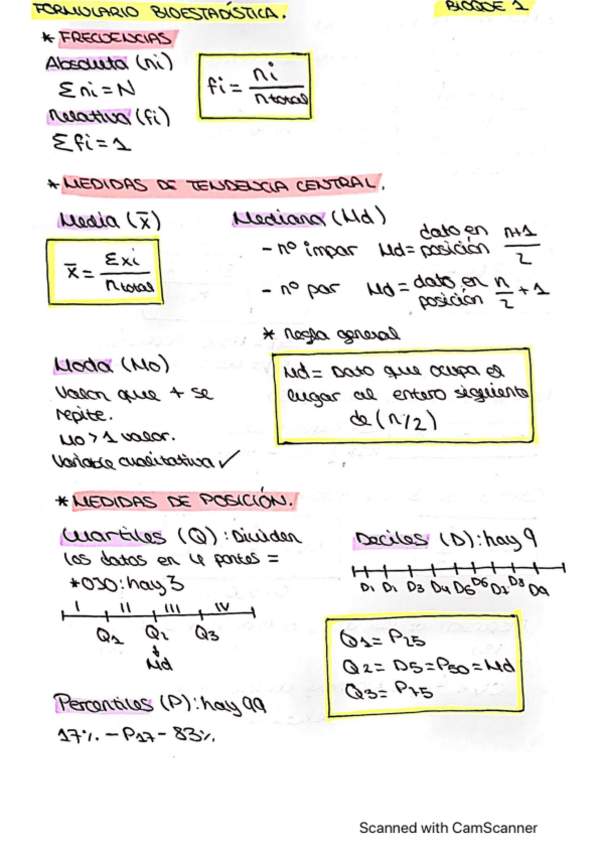 FORMULARIO BIOESTADÍSTICA.
BLOQUE 1
* FRECUENCIAS
Absoluta (ni)
Σni = N
Relativa (fi)
Σfi = 1
fi = ni / ntotal
* MEDIDAS DE TENDENCIA CENTRAL.
Media (x̄)
x̄ = Σxi / ntotal
Mediana (Md)
- nº impar Md = dato en posición n+1 / 2
- nº par Md = dato en posición n / 2 + 1
* Regla general
Md = Dato que ocupa el
lugar al entero siguiente
de (n/2)
Moda (Mo)
Valor que + se
repite.
Mo > 1 valor.
Variable cualitativa ✓
* MEDIDAS DE POSICIÓN.
Cuartiles (Q): Dividen
los datos en 4 partes =
*OJO: hay 3
I II III IV
Q1 Q2 Q3
↓
Md
Deciles (D): hay 9
D1 D1 D3 D4 D5 D6 D7 D8 D9
Q1 = P25
Q2 = D5 = P50 = Md
Q3 = P75
Percentiles (P): hay 99
17% - P17 - 83%
Scanned with CamScanner